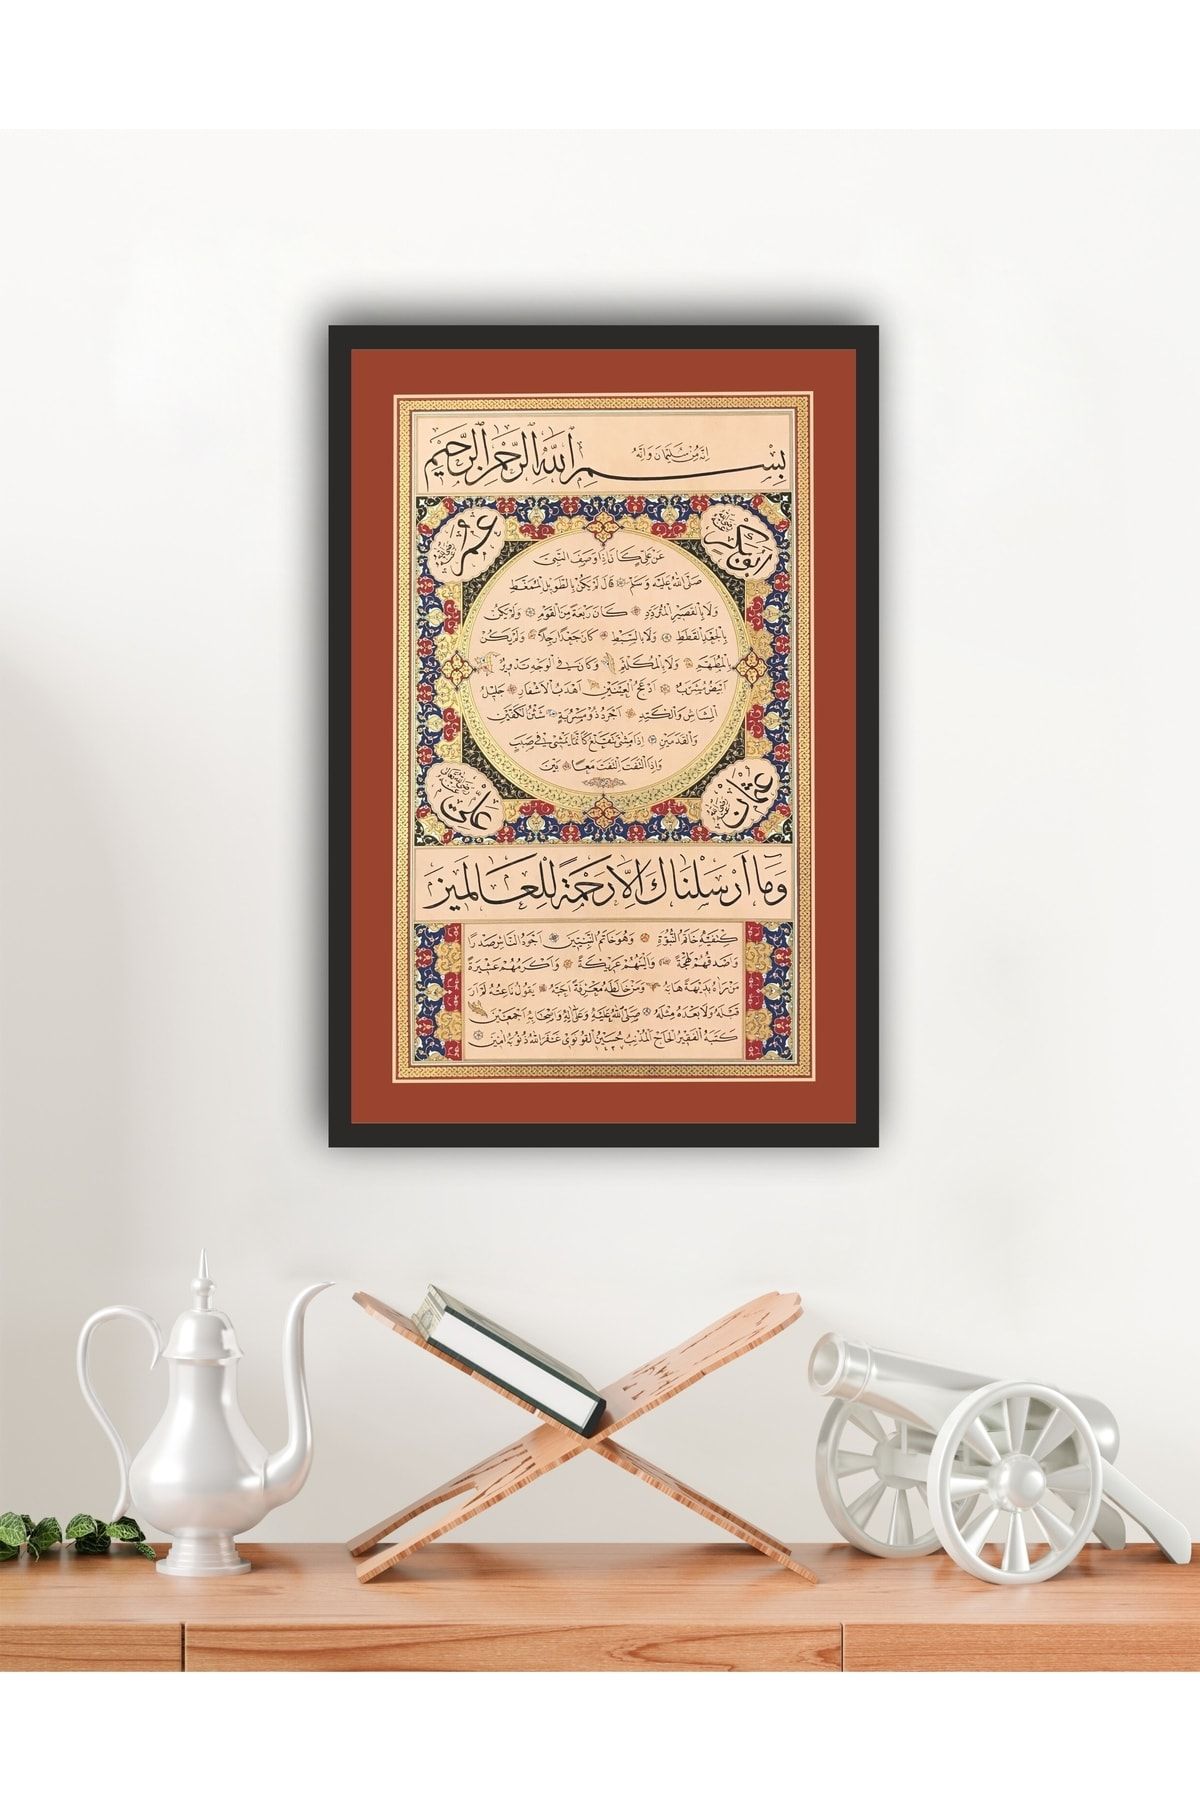 إنه من سليمان وإنه
بسم الله الرحمن الرحيم
أبو بكر رضي الله عنه
عمر رضي الله عنه
عن علي كان إذا وصف النبي
صلى الله عليه وسلم قال لم يكن بالطويل الممغط
ولا بالقصير المتردد كان ربعة من القوم ولم يكن
بالجعد القطط ولا بالسبط كان جعدا رجلا ولم يكن
بالمطهم ولا بالمكلثم وكان في الوجه تدوير
أبيض مشرب أدعج العينين أهدب الأشفار جليل
المشاش والكتد أجرد ذو مسربة شثن الكفين
والقدمين إذا مشى تقلع كأنما يمشي في صبب
وإذا التفت التفت معا بين
عثمان رضي الله عنه
علي رضي الله عنه
وما أرسلناك إلا رحمة للعالمين
كتفيه خاتم النبوة وهو خاتم النبيين أجود الناس صدرا
وأصدقهم لهجة وألينهم عريكة وأكرمهم عشيرة
من رآه بديهة هابه ومن خالطه معرفة أحبه يقول ناعته لم أر
قبله ولا بعده مثله صلى الله عليه وعلى آله وأصحابه أجمعين
كتبه الفقير الحاج المذنب حسين القونوي غفر الله ذنوبه آمين